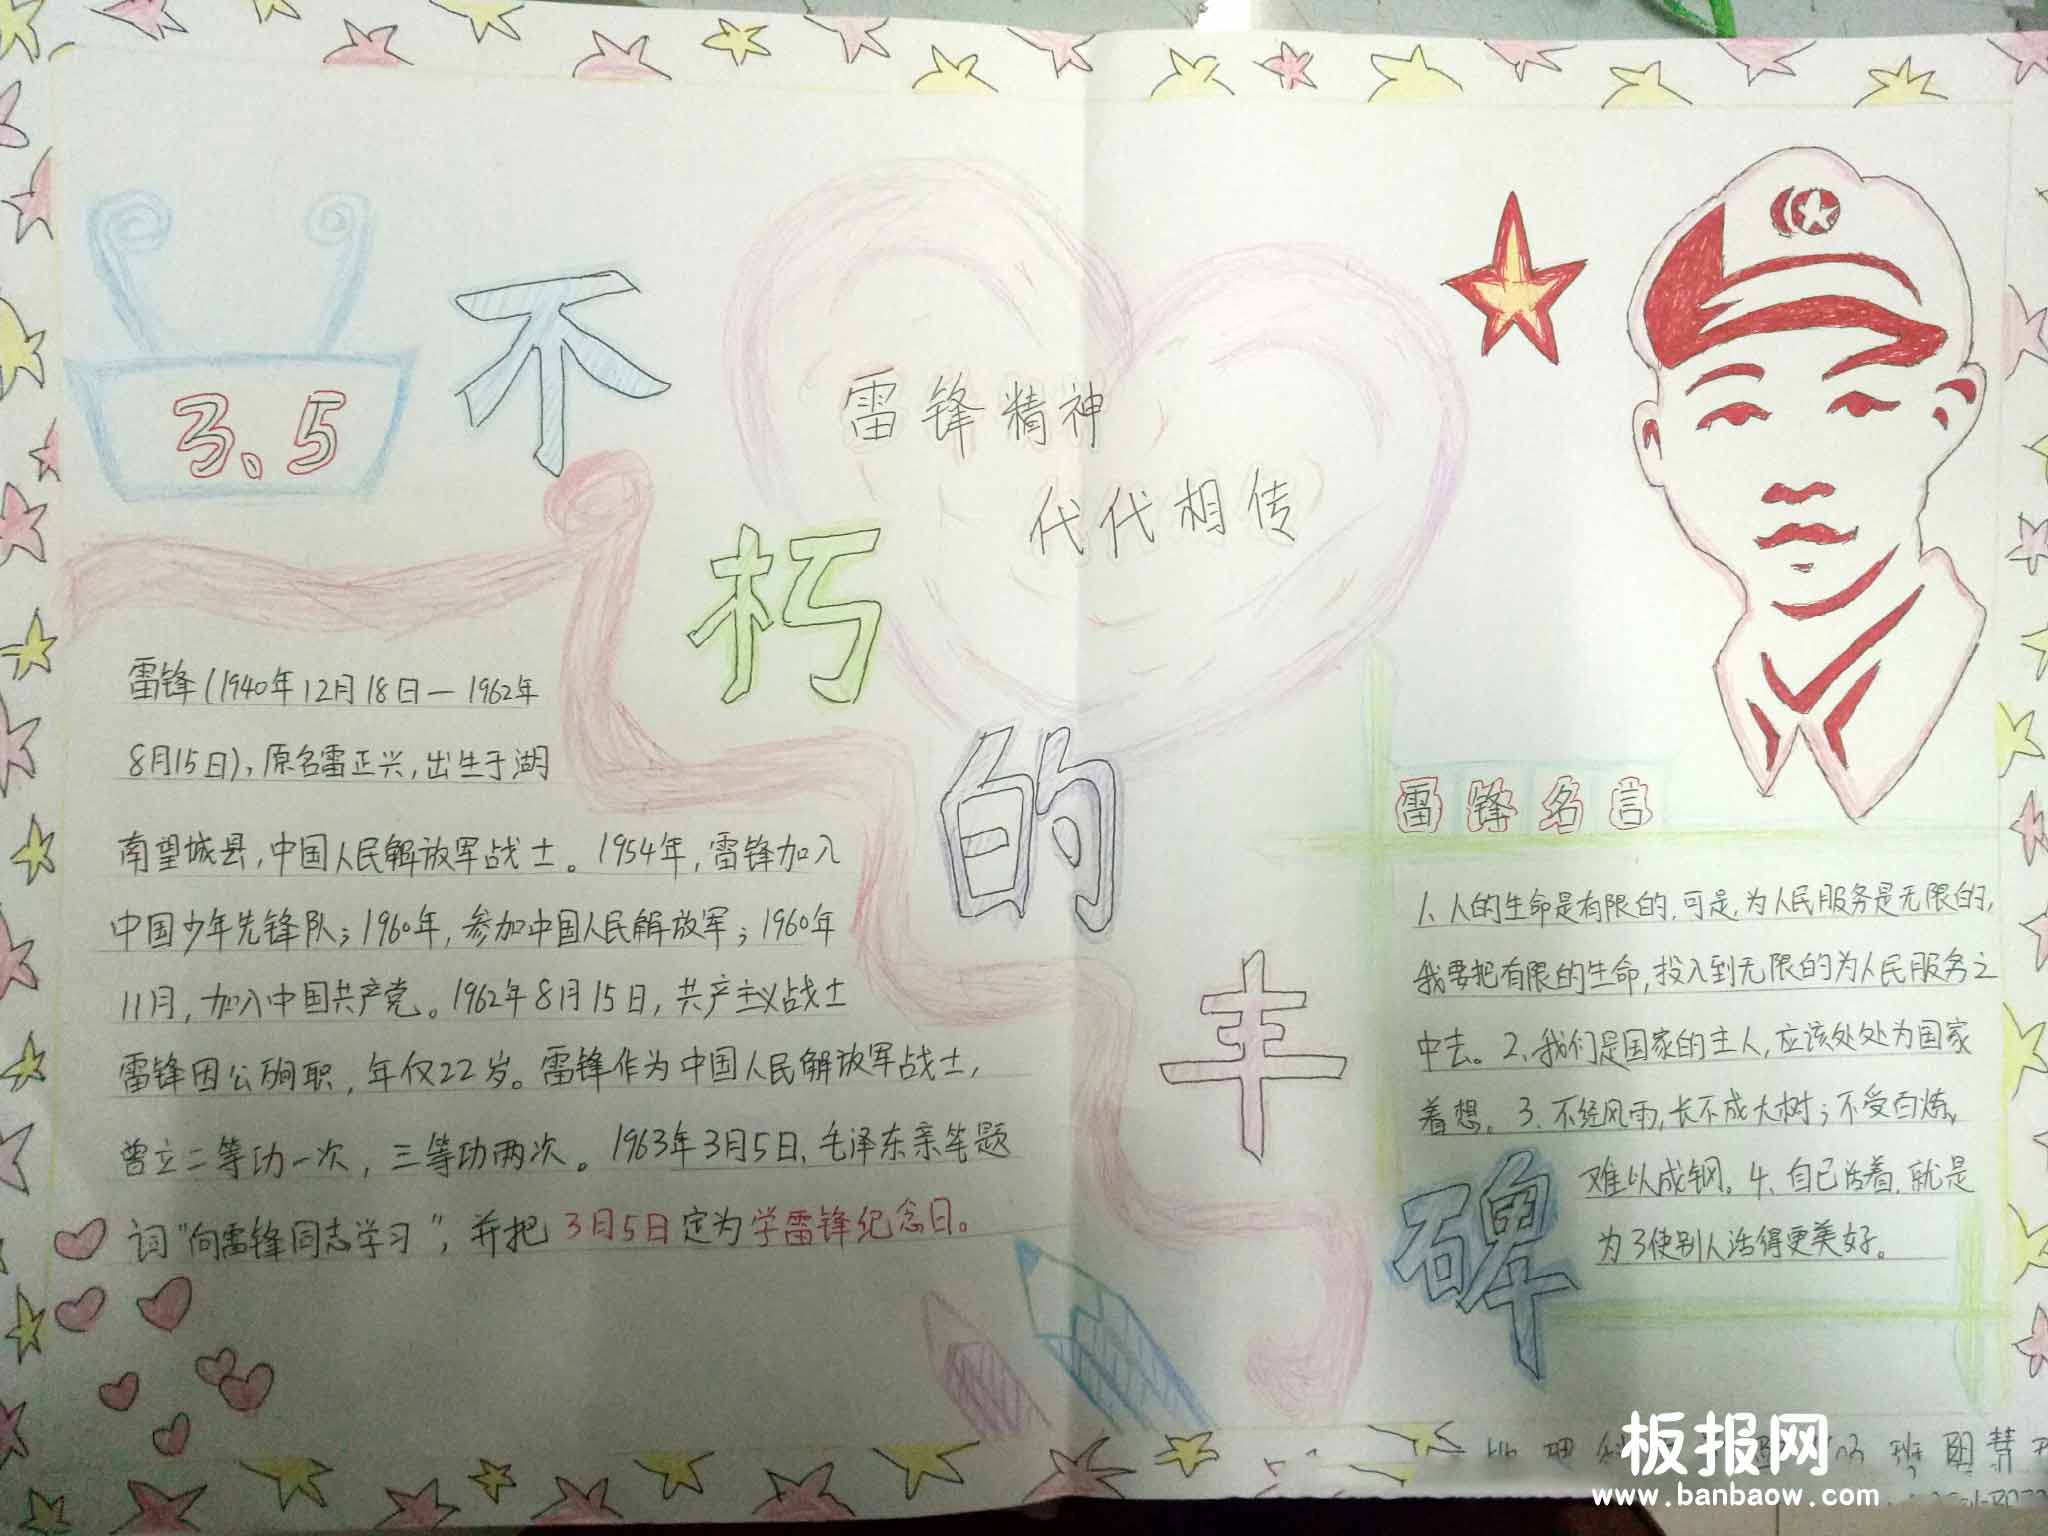 3、5
不朽的丰碑
雷锋精神
代代相传
雷锋(1940年12月18日—1962年
8月15日),原名雷正兴,出生于湖
南望城县,中国人民解放军战士。1954年,雷锋加入
中国少年先锋队;1960年,参加中国人民解放军;1960年
11月,加入中国共产党。1962年8月15日,共产主义战士
雷锋因公殉职,年仅22岁。雷锋作为中国人民解放军战士,
曾立二等功一次,三等功两次。1963年3月5日,毛泽东亲笔题
词“向雷锋同志学习”,并把3月5日定为学雷锋纪念日。
雷锋名言
1、人的生命是有限的,可是,为人民服务是无限的,
我要把有限的生命,投入到无限的为人民服务之
中去。2、我们是国家的主人,应该处处为国家
着想。3、不经风雨,长不成大树;不受百炼,
难以成钢。4、自己活着,就是
为了使别人活得更美好。
板报网
www.banbaow.com